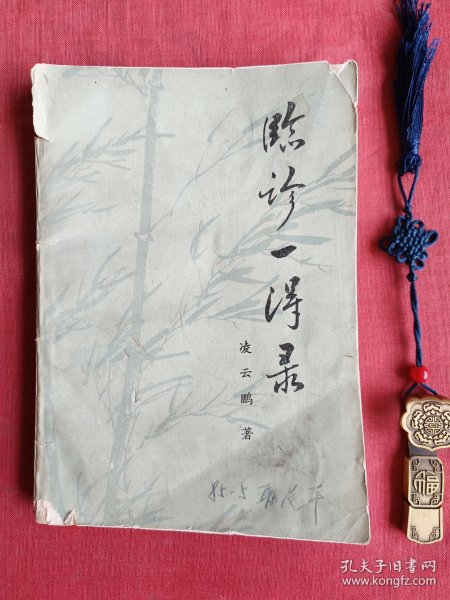 臨诊一得录
凌云鹏 著
85-5
福
孔夫子旧书网
www.kongfz.com